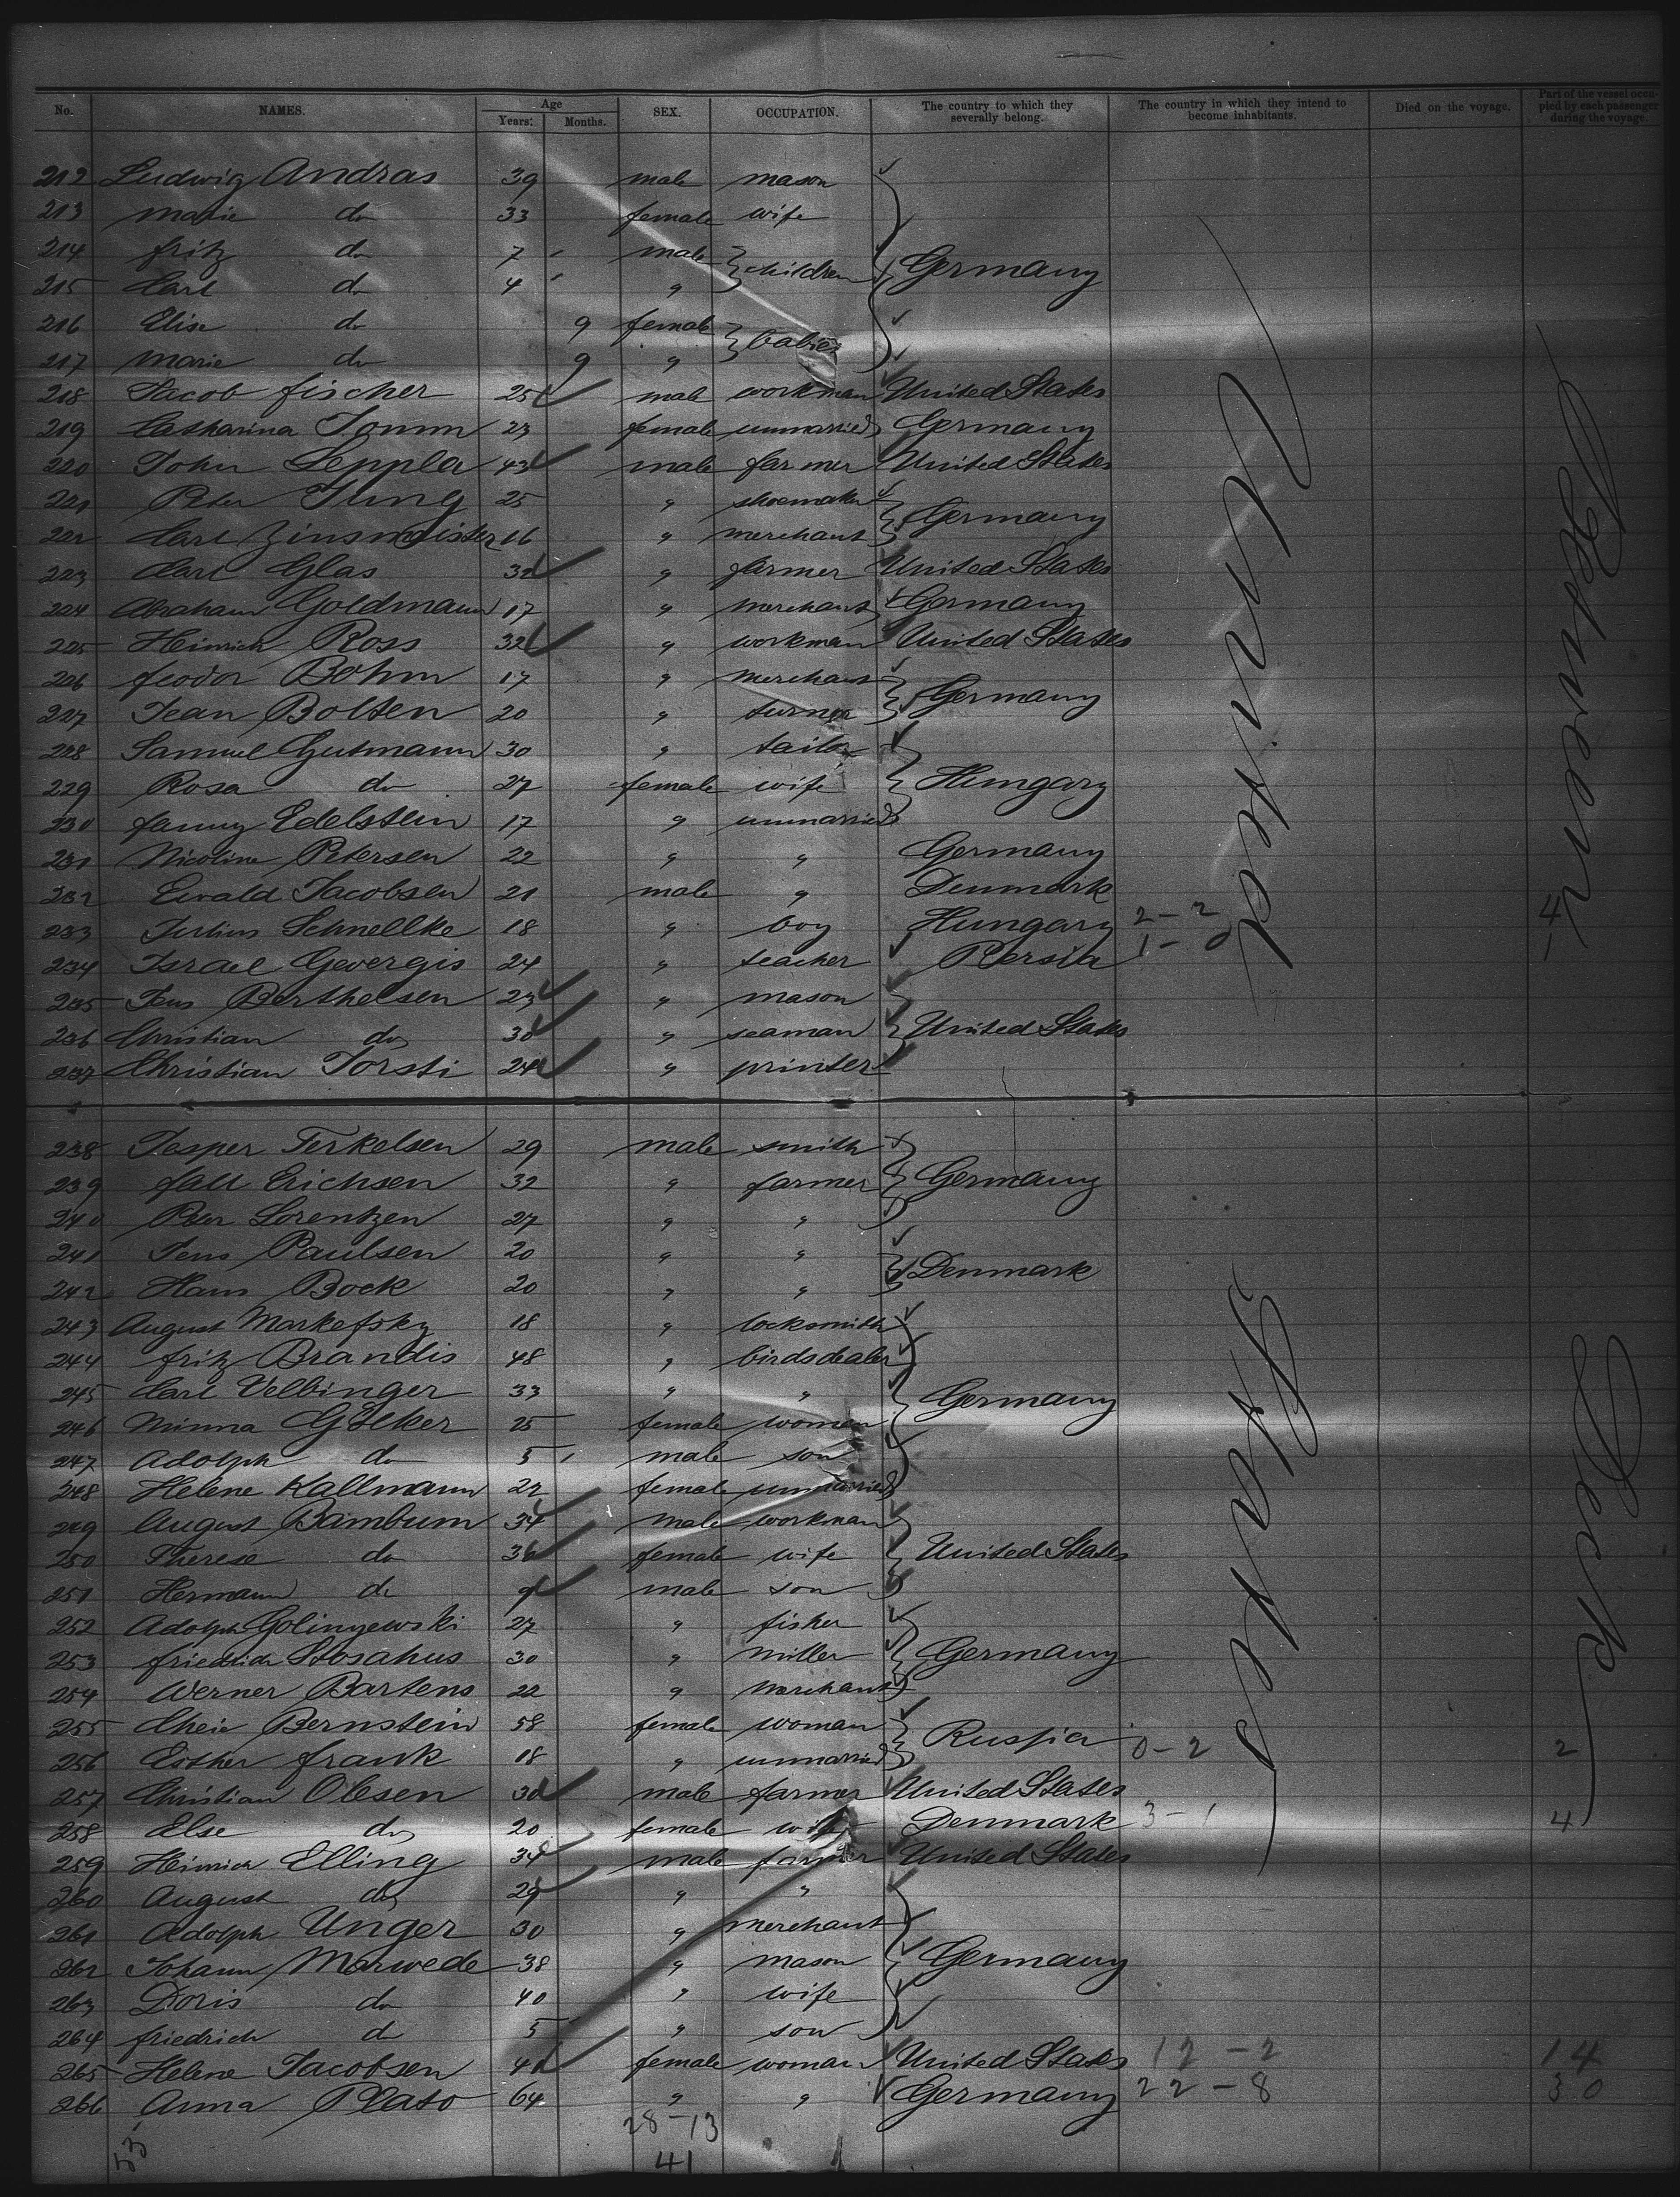 No. NAMES. Age Years: Months. SEX. OCCUPATION. The country to which they severally belong. The country in which they intend to become inhabitants. Died on the voyage. Part of the vessel occupied by each passenger during the voyage.
212 Ludwig Andras 39 male mason
213 Marie do 33 female wife
214 Fritz do 7 male children Germany
215 Carl do 4 "
216 Elise do 9 female babies
217 Marie do 9 "
218 Jacob Fischer 25 male workman United States
219 Catharina 23 female unmarried Germany
220 John Leppla 43 male farmer United States
221 Peter Jung 25 " shoemaker Germany
222 Carl Zinsmeister 16 " merchant
223 Carl Glas 32 " farmer United States
224 Abraham Goldmann 17 " merchant Germany
225 Heinrich Ross 32 " workman United States
226 Feodor Böhm 17 " merchant Germany
227 Jean Bolten 20 " turner
228 Samuel Gutmann 30 " tailor
229 Rosa do 27 female wife Hungary
230 Fanny Edelstein 17 " unmarried
231 Nicoline Petersen 22 " " Germany
232 Ewald Jacobsen 21 male " Denmark
233 Julius Schnellke 18 " boy Hungary 2-2 4
234 Israel Gevergis 24 " teacher Persia 1-0 1
235 Jens Berthelsen 23 " mason
236 Christian do 30 " seaman United States
237 Christian Torsti 24 " printer
238 Jesper Terkelsen 29 male smith
239 Fall Erichsen 32 " farmer Germany
240 Peter Lorentzen 27 " "
241 Jens Paulsen 20 " " Denmark
242 Hans Bock 20 " "
243 August Markefsky 18 " locksmith
244 Fritz Brandis 48 " birdsdealer
245 Carl Velbinger 33 " " Germany
246 Minna Gölker 25 female woman
247 Adolph do 5 male son
248 Helene Kallmann 22 female unmarried
249 August Bambum 34 male workman
250 Therese do 36 female wife United States
251 Hermann do 9 male son
252 Adolph Golinyewski 27 " fisher
253 Friedrich Stosahus 30 " miller Germany
254 Werner Bartens 22 " merchant
255 Bernstein 58 female woman Russia
256 Esther Frank 18 " unmarried 0-2 2
257 Christian Olesen 30 male farmer United States
258 Else do 20 female wife Denmark 3-1 4
259 Heinrich Elling 34 male farmer United States
260 August do 29 " "
261 Adolph Unger 30 " merchant
262 Johann Marwede 38 " mason Germany
263 Doris do 40 " wife
264 Friedrich do 5 " son
265 Helene Jacobsen 41 female woman United States 12-2 14
266 Anna Plato 64 " " Germany 22-8 30
28-13
41
United
States
Between
Deck